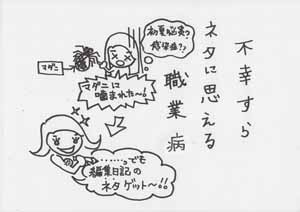 不幸すら
ネタに思える
職業病
感染症??
マダニ
マダニに
噛まれた〜!
………でも
編集日記の
ネタゲット〜!!